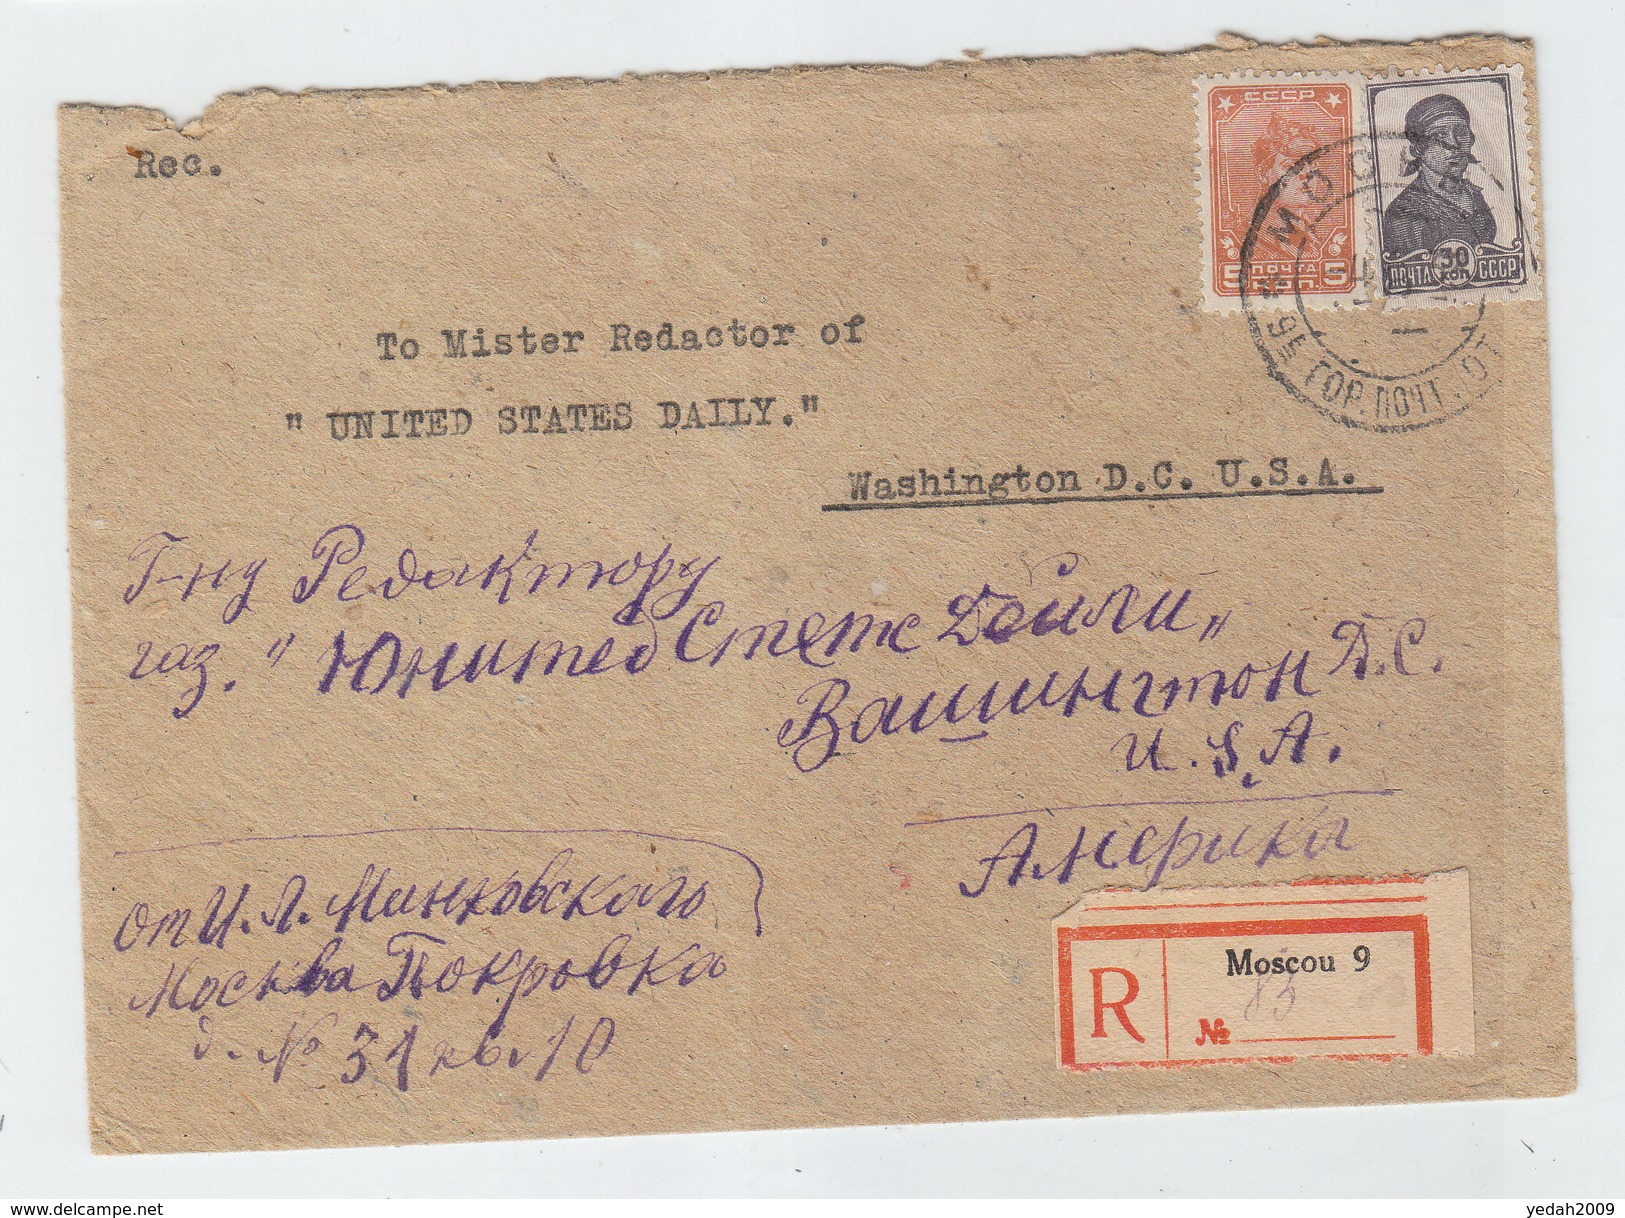 Rec.
СССР
5 ПОЧТА 5
КОП.
30
ПОЧТА КОП СССР
МОСКВА
9Е ГОР. ПОЧТ. ОТ
To Mister Redactor of
" UNITED STATES DAILY."
Washington D.C. U.S.A.
Г-ну Редактору
газ. "Юнитед Стетс Дейли"
Вашингтон Д.С.
U.S.A.
Америка
от И. Л. Минковского
Москва Покровка
д. № 31 кв. 10
R
Moscou 9
№ 83
yedah2009